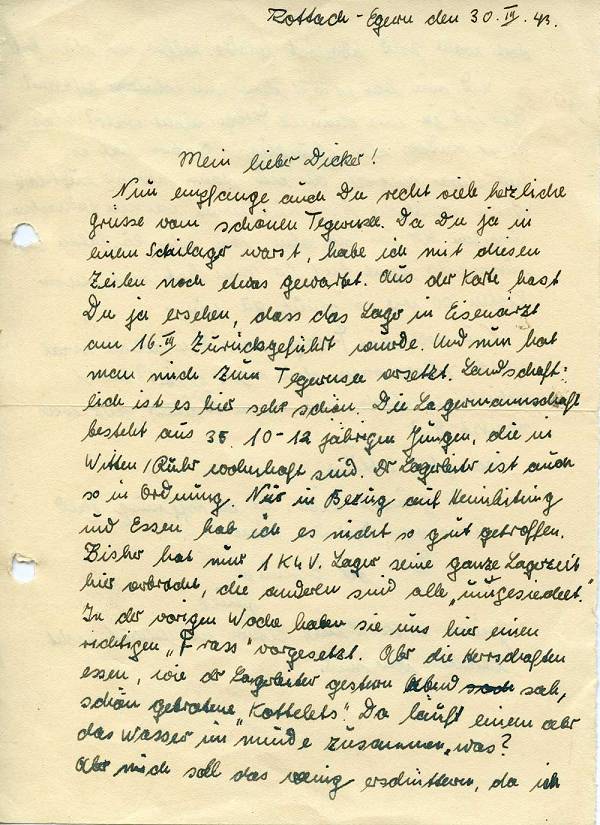 Rottach-Egern den 30. III. 43.
Mein lieber Dicker!
Nun empfange auch Du recht viele herzliche
grüsse vom schönen Tegernsee. Da Du ja in
einem Schilager warst, habe ich mit diesen
Zeilen noch etwas gewartet. Aus der Karte hast
Du ja ersehen, dass das Lager in Eisenärzt
am 16. III zurückgeführt wurde. Und nun hat
man mich zum Tegernsee versetzt. Landschaft-
lich ist es hier sehr schön. Die Lagermannschaft
besteht aus 35 10-12 jährigen Jungen, die in
Witten/Ruhr wohnhaft sind. Dr Lagerleiter ist auch
so in Ordnung. Nur in Bezug auf Heimleitung
und Essen hab ich es nicht so gut getroffen.
Bisher hat nur 1 K.L.V. Lager seine ganze Lagerzeit
hier verbracht, die anderen sind alle "umgesiedelt."
In der vorigen Woche haben sie uns hier einen
richtigen "Frass" vorgesetzt. Aber die Herrschaften
essen, wie dr Lagerleiter gestern Abend sah,
schön gebratene "Kottelets". Da läuft einem aber
das Wasser im munde zusammen, was?
Aber mich soll das wenig erschüttern, da ich